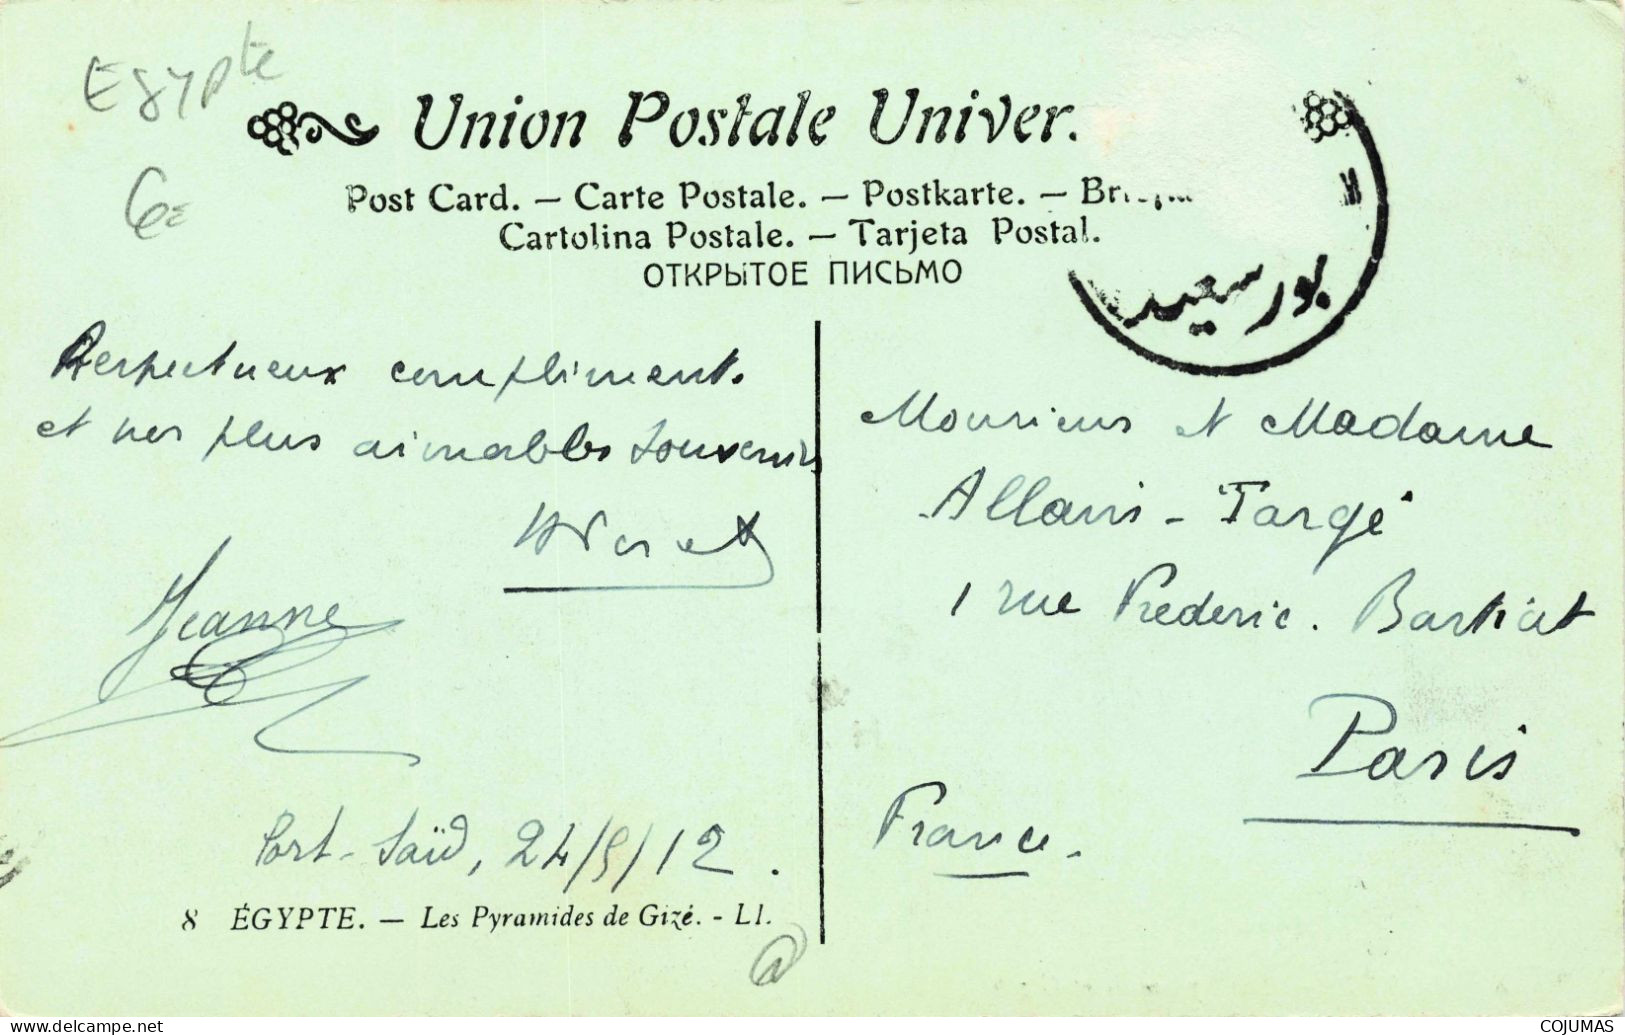 Egypte
Union Postale Univer.
6€
Post Card. — Carte Postale. — Postkarte. —
Cartolina Postale. — Tarjeta Postal.
ОТКРЫТОЕ ПИСЬМО
بور سعيد
Respectueux compliments
et nos plus aimables souvenirs
Jeanne
Port-Saïd, 24/9/12.
8 ÉGYPTE. — Les Pyramides de Gizé. - LL.
Monsieur et Madame
Allain-Targé
1 rue Frédéric. Bastiat
Paris
France.
COJUMAS